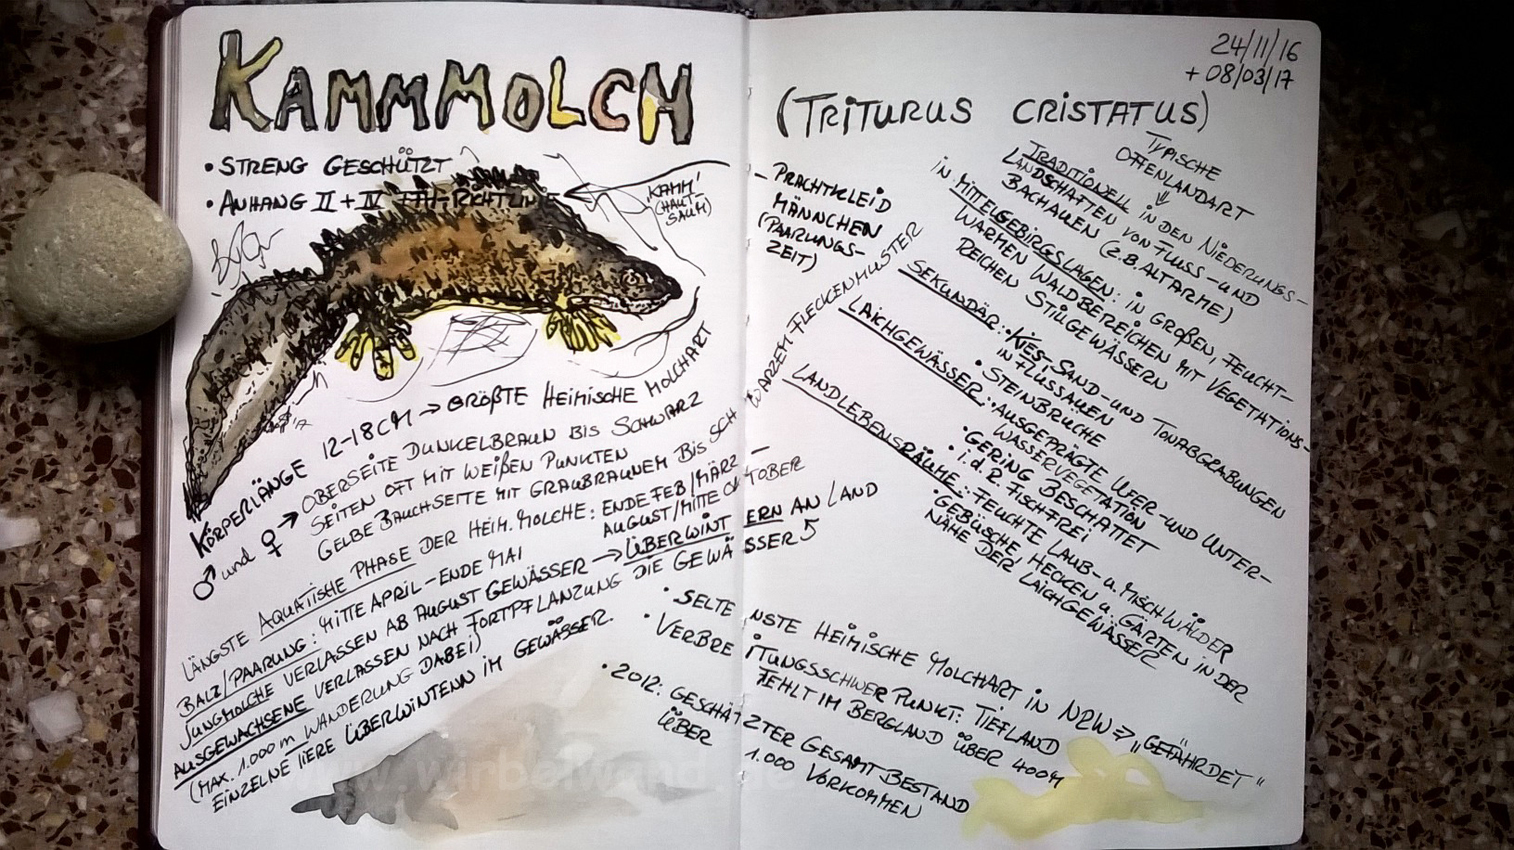 KAMMMOLCH
• STRENG GESCHÜTZT
• ANHANG II + IV FFH-RICHTLINIE
"KAMM"
(HAUT-
SAUM)
KÖRPERLÄNGE 12-18CM → GRÖßTE HEIMISCHE MOLCHART
♂ und ♀ → OBERSEITE DUNKELBRAUN BIS SCHWARZ
SEITEN OFT MIT WEIßEN PUNKTEN
GELBE BAUCHSEITE MIT GRAUBRAUNEM BIS SCHWARZEM FLECKENMUSTER
LÄNGSTE AQUATISCHE PHASE DER HEIM. MOLCHE: ENDE FEB/MÄRZ –
AUGUST/MITTE OKTOBER
BALZ/PAARUNG: MITTE APRIL – ENDE MAI
JUNGMOLCHE VERLASSEN AB AUGUST GEWÄSSER → ÜBERWINTERN AN LAND
AUSGEWACHSENE VERLASSEN NACH FORTPFLANZUNG DIE GEWÄSSER
(MAX. 1.000m WANDERUNG DABEI)
EINZELNE TIERE ÜBERWINTENN IM GEWÄSSER.
24/11/16
+ 08/03/17
(TRITURUS CRISTATUS)
– PRACHTKLEID
MÄNNCHEN
(PAARUNGS-
ZEIT)
TYPISCHE
OFFENLANDART
⇓
TRADITIONELL IN DEN NIEDERUNGS-
LANDSCHAFTEN VON FLUSS- UND
BACHAUEN (Z.B. ALTARME)
IN MITTELGEBIRGSLAGEN: IN GROßEN, FEUCHT-
WARMEN WALDBEREICHEN MIT VEGETATIONS-
REICHEN STILLGEWÄSSERN
SEKUNDÄR: • KIES-, SAND- UND TONABGRABUNGEN
IN FLUSSAUEN
• STEINBRÜCHE
LAICHGEWÄSSER: • AUSGEPRÄGTE UFER- UND UNTER-
WASSERVEGETATION
• GERING BESCHATTET
• i.d.R FISCHFREI
LANDLEBENSRÄUME: • FEUCHTE LAUB- u. MISCHWÄLDER
• GEBÜSCHE, HECKEN u. GÄRTEN IN DER
NÄHE DER LAICHGEWÄSSER
• SELTENSTE HEIMISCHE MOLCHART IN NRW ⇒ "GEFÄHRDET"
• VERBREITUNGSSCHWERPUNKT: TIEFLAND
FEHLT IM BERGLAND ÜBER 400M
• 2012: GESCHÄTZTER GESAMTBESTAND
ÜBER 1.000 VORKOMMEN
www.wirbelwund.de